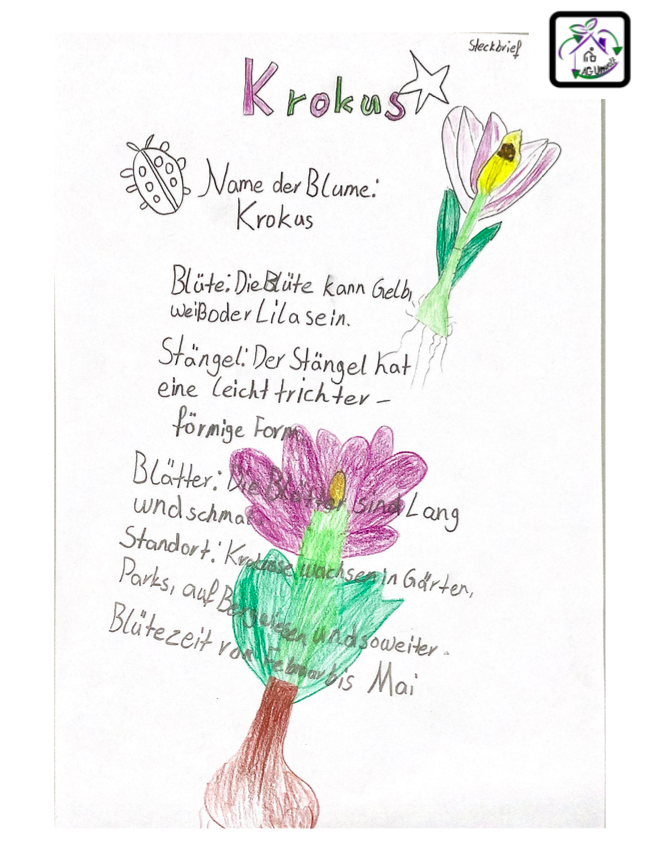 Steckbrief
AG Umwelt
Krokus
Name der Blume:
Krokus
Blüte: Die Blüte kann Gelb,
weiß oder Lila sein.
Stängel: Der Stängel hat
eine leicht trichter-
förmige Form.
Blätter: Die Blätter sind Lang
und schmal
Standort: Krokusse wachsen in Gärten,
Parks, auf Bergwiesen und soweiter.
Blütezeit von Februar bis Mai